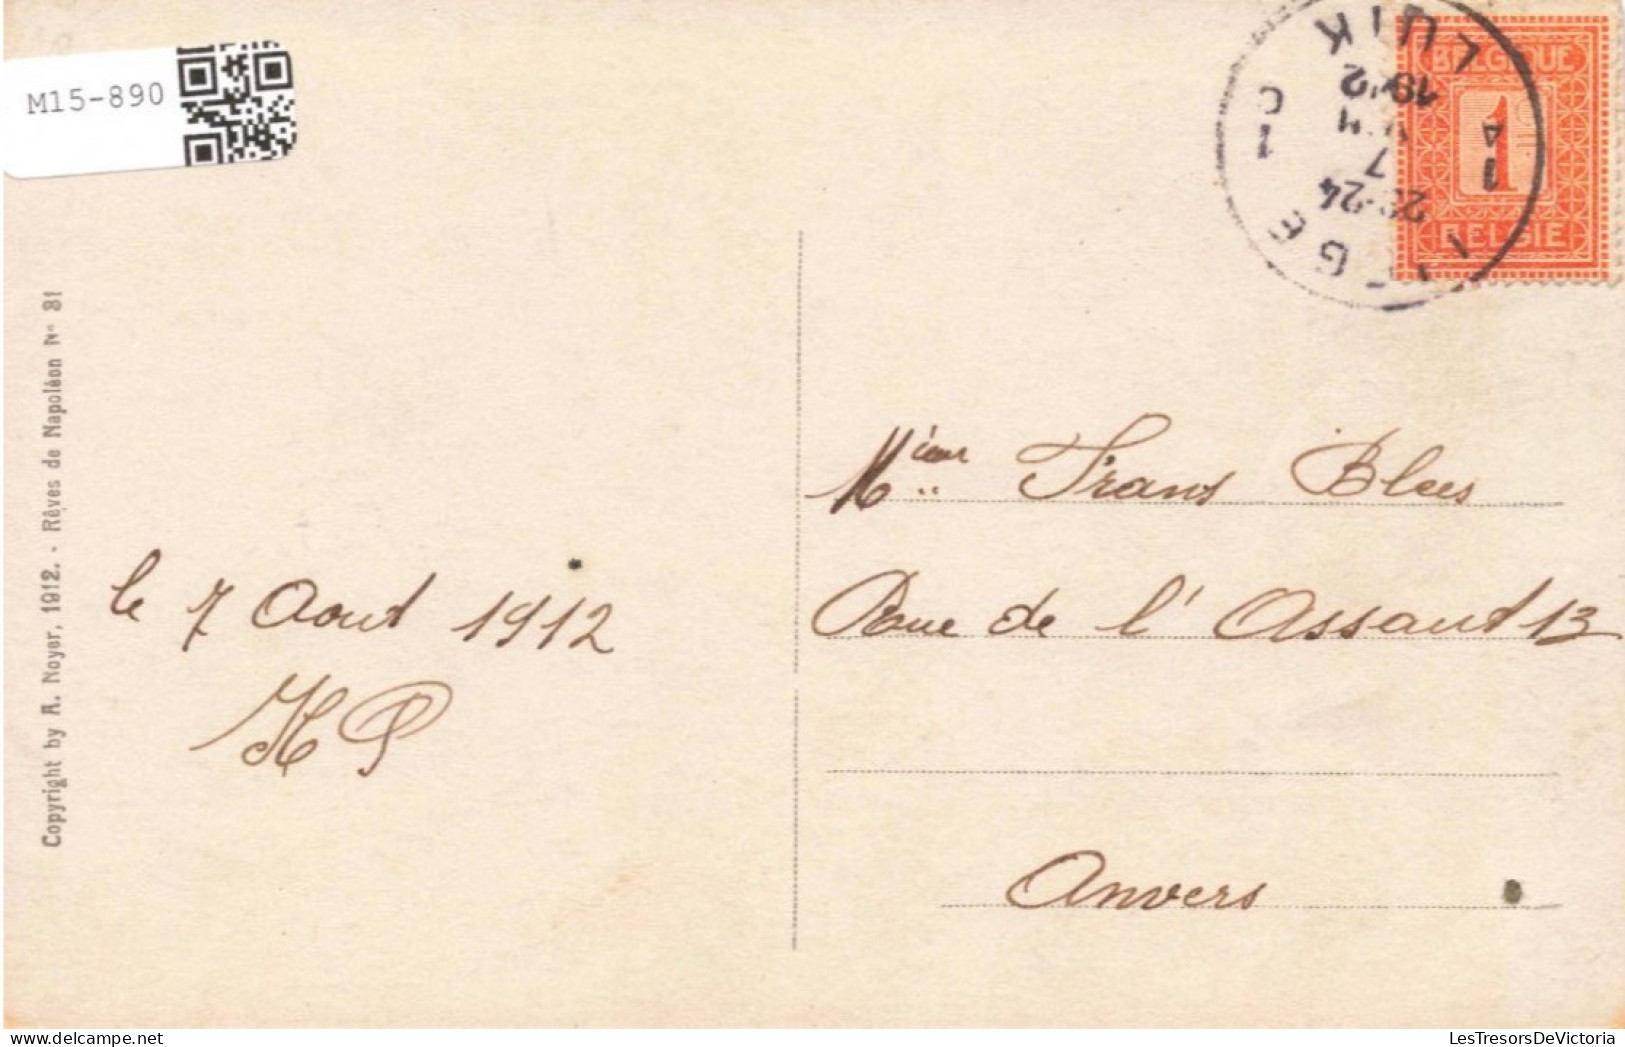 M15-890
BELGIQUE
1
BELGIE
LUIK
1912
7
LIEGE
Copyright by A. Noyer, 1912. - Rêves de Napoléon No 81
le 7 Aout 1912
HP
Mieur Frans Blees
Rue de l' Assaut 13
Anvers
LesTresorsDeVictoria